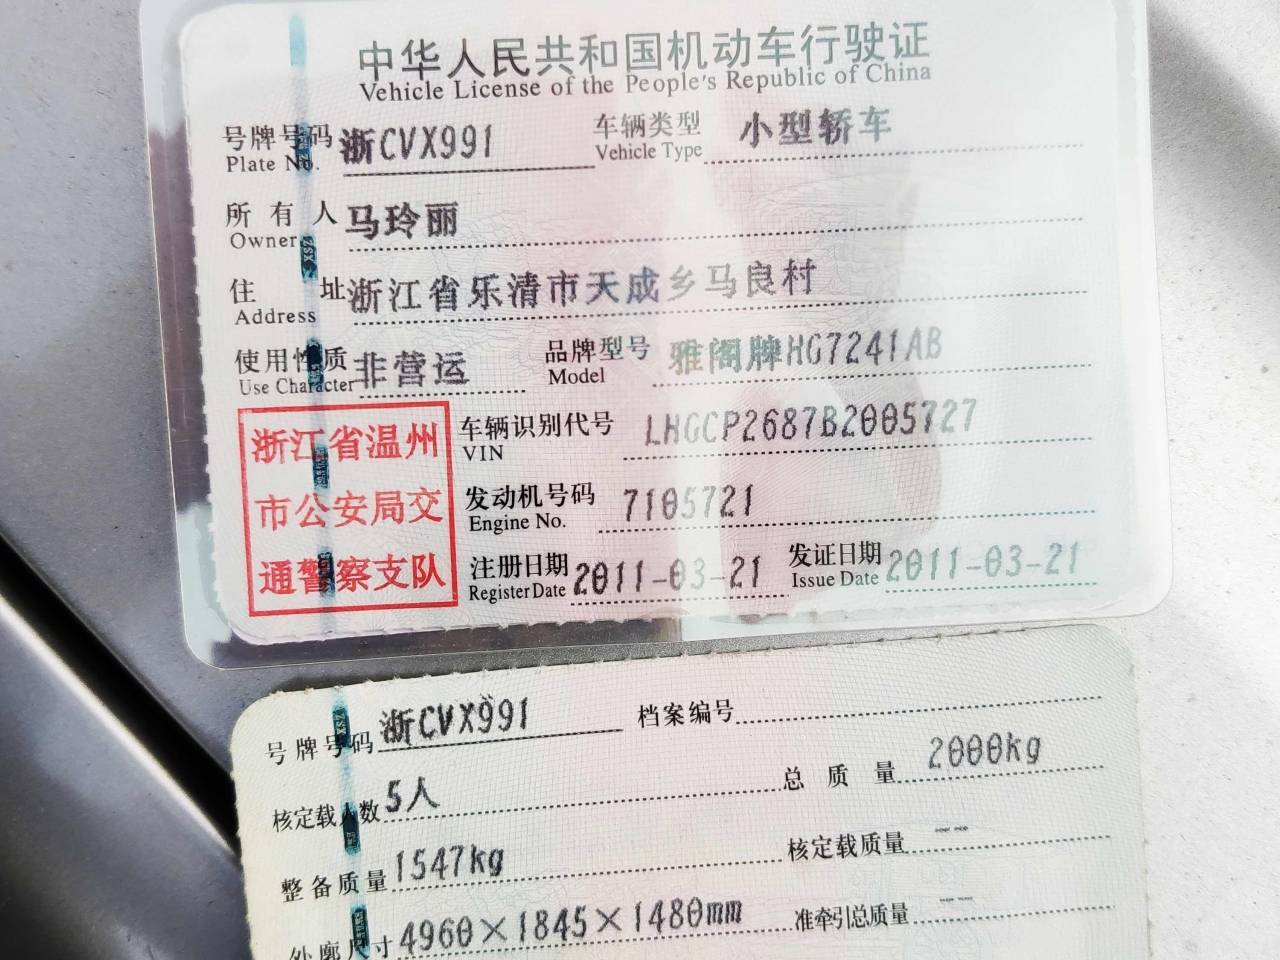 中华人民共和国机动车行驶证
Vehicle License of the People's Republic of China
号牌号码 浙CVX991 车辆类型 小型轿车
Plate No. Vehicle Type
所有人 马玲丽
Owner
住址 浙江省乐清市天成乡马良村
Address
使用性质 非营运 品牌型号 雅阁牌HG7241AB
Use Character Model
浙江省温州
市公安局交
通警察支队
车辆识别代号 LHGCP2687B2005727
VIN
发动机号码 7105721
Engine No.
注册日期 2011-03-21 发证日期 2011-03-21
Register Date Issue Date
号牌号码 浙CVX991 档案编号
核定载人数 5人 总质量 2000kg
整备质量 1547kg 核定载质量 --
外廓尺寸 4960×1845×1480mm 准牵引总质量 --